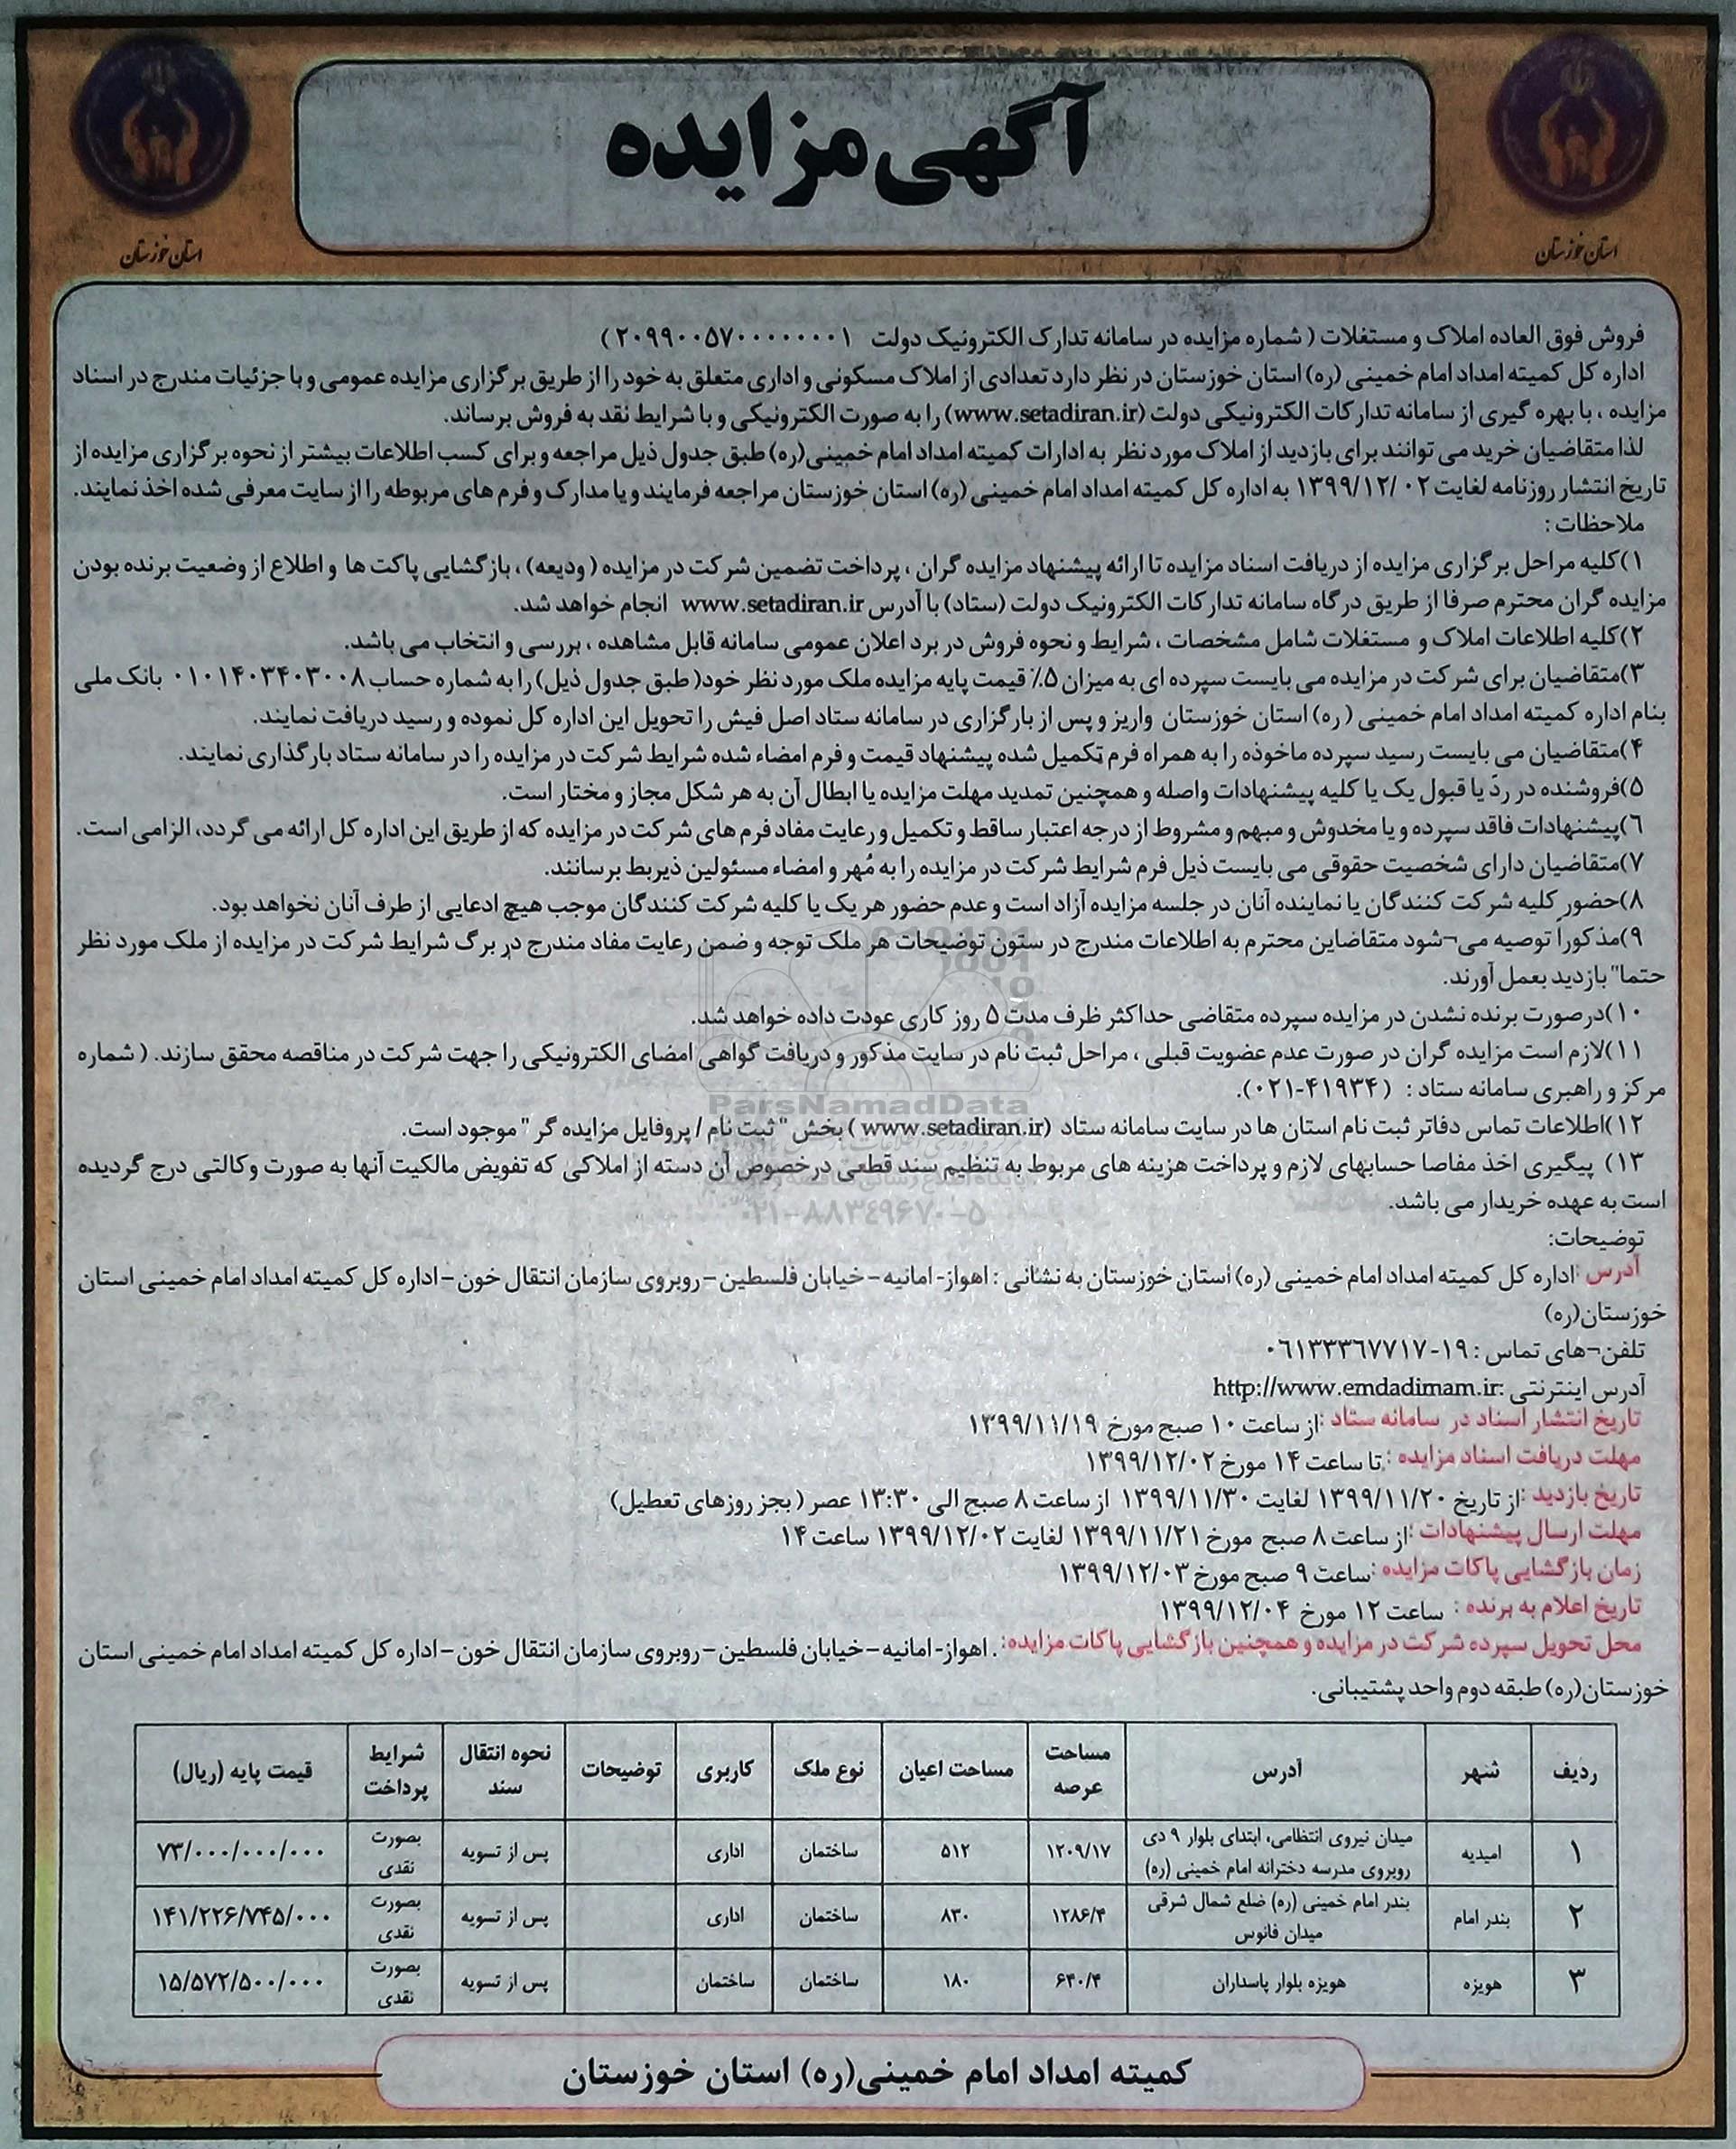 آگهی مزایده
استان خوزستان
استان خوزستان
فروش فوق العاده املاک و مستغلات ( شماره مزایده در سامانه تدارک الکترونیک دولت ۲۰۹۹۰۰۵۷۰۰۰۰۰۰۰۱ )
اداره کل کمیته امداد امام خمینی (ره) استان خوزستان در نظر دارد تعدادی از املاک مسکونی و اداری متعلق به خود را از طریق برگزاری مزایده عمومی و با جزئیات مندرج در اسناد
مزایده ، با بهره گیری از سامانه تدارکات الکترونیکی دولت (www.setadiran.ir) را به صورت الکترونیکی و با شرایط نقد به فروش برساند.
لذا متقاضیان خرید می توانند برای بازدید از املاک مورد نظر به ادارات کمیته امداد امام خمینی(ره) طبق جدول ذیل مراجعه و برای کسب اطلاعات بیشتر از نحوه برگزاری مزایده از
تاریخ انتشار روزنامه لغایت ۱۳۹۹/۱۲/۰۲ به اداره کل کمیته امداد امام خمینی (ره) استان خوزستان مراجعه فرمایند و یا مدارک و فرم های مربوطه را از سایت معرفی شده اخذ نمایند.
ملاحظات :
۱)کلیه مراحل برگزاری مزایده از دریافت اسناد مزایده تا ارائه پیشنهاد مزایده گران ، پرداخت تضمین شرکت در مزایده ( ودیعه) ، بازگشایی پاکت ها و اطلاع از وضعیت برنده بودن
مزایده گران محترم صرفا از طریق درگاه سامانه تدارکات الکترونیک دولت (ستاد) با آدرس www.setadiran.ir انجام خواهد شد.
۲)کلیه اطلاعات املاک و مستغلات شامل مشخصات ، شرایط و نحوه فروش در برد اعلان عمومی سامانه قابل مشاهده ، بررسی و انتخاب می باشد.
۳)متقاضیان برای شرکت در مزایده می بایست سپرده ای به میزان ۵٪ قیمت پایه مزایده ملک مورد نظر خود( طبق جدول ذیل) را به شماره حساب ۰۱۰۱۴۰۳۴۰۳۰۰۸ بانک ملی
بنام اداره کمیته امداد امام خمینی ( ره) استان خوزستان واریز و پس از بارگزاری در سامانه ستاد اصل فیش را تحویل این اداره کل نموده و رسید دریافت نمایند.
۴)متقاضیان می بایست رسید سپرده ماخوذه را به همراه فرم تکمیل شده پیشنهاد قیمت و فرم امضاء شده شرایط شرکت در مزایده را در سامانه ستاد بارگذاری نمایند.
۵)فروشنده در ردّ یا قبول یک یا کلیه پیشنهادات واصله و همچنین تمدید مهلت مزایده یا ابطال آن به هر شکل مجاز و مختار است.
۶)پیشنهادات فاقد سپرده و یا مخدوش و مبهم و مشروط از درجه اعتبار ساقط و تکمیل و رعایت مفاد فرم های شرکت در مزایده که از طریق این اداره کل ارائه می گردد، الزامی است.
۷)متقاضیان دارای شخصیت حقوقی می بایست ذیل فرم شرایط شرکت در مزایده را به مُهر و امضاء مسئولین ذیربط برسانند.
۸)حضور کلیه شرکت کنندگان یا نماینده آنان در جلسه مزایده آزاد است و عدم حضور هر یک یا کلیه شرکت کنندگان موجب هیچ ادعایی از طرف آنان نخواهد بود.
۹)مذکوراً توصیه می¬شود متقاضاین محترم به اطلاعات مندرج در ستون توضیحات هر ملک توجه و ضمن رعایت مفاد مندرج در برگ شرایط شرکت در مزایده از ملک مورد نظر
حتما" بازدید بعمل آورند.
۱۰)درصورت برنده نشدن در مزایده سپرده متقاضی حداکثر ظرف مدت ۵ روز کاری عودت داده خواهد شد.
۱۱)لازم است مزایده گران در صورت عدم عضویت قبلی ، مراحل ثبت نام در سایت مذکور و دریافت گواهی امضای الکترونیکی را جهت شرکت در مناقصه محقق سازند. ( شماره
مرکز و راهبری سامانه ستاد : ( ۴۱۹۳۴-۰۲۱).
ParsNamadData
۱۲)اطلاعات تماس دفاتر ثبت نام استان ها در سایت سامانه ستاد (www.setadiran.ir ) بخش " ثبت نام / پروفایل مزایده گر " موجود است.
۱۳) پیگیری اخذ مفاصا حسابهای لازم و پرداخت هزینه های مربوط به تنظیم سند قطعی درخصوص آن دسته از املاکی که تفویض مالکیت آنها به صورت وکالتی درج گردیده
است به عهده خریدار می باشد.
۰۲۱-۸۸۳۴۹۶۷۰-۵
توضیحات:
آدرس :اداره کل کمیته امداد امام خمینی (ره) استان خوزستان به نشانی : اهواز- امانیه – خیابان فلسطین – روبروی سازمان انتقال خون – اداره کل کمیته امداد امام خمینی استان
خوزستان(ره)
تلفن¬های تماس : ۱۹-۰۶۱۳۳۳۶۷۷۱۷
آدرس اینترنتی :http://www.emdadimam.ir
تاریخ انتشار اسناد در سامانه ستاد :از ساعت ۱۰ صبح مورخ ۱۳۹۹/۱۱/۱۹
مهلت دریافت اسناد مزایده : تا ساعت ۱۴ مورخ ۱۳۹۹/۱۲/۰۲
تاریخ بازدید :از تاریخ ۱۳۹۹/۱۱/۲۰ لغایت ۱۳۹۹/۱۱/۳۰ از ساعت ۸ صبح الی ۱۳:۳۰ عصر ( بجز روزهای تعطیل)
مهلت ارسال پیشنهادات :از ساعت ۸ صبح مورخ ۱۳۹۹/۱۱/۲۱ لغایت ۱۳۹۹/۱۲/۰۲ ساعت ۱۴
زمان بازگشایی پاکات مزایده :ساعت ۹ صبح مورخ ۱۳۹۹/۱۲/۰۳
تاریخ اعلام به برنده : ساعت ۱۲ مورخ ۱۳۹۹/۱۲/۰۴
محل تحویل سپرده شرکت در مزایده و همچنین بازگشایی پاکات مزایده: . اهواز- امانیه – خیابان فلسطین – روبروی سازمان انتقال خون – اداره کل کمیته امداد امام خمینی استان
خوزستان(ره) طبقه دوم واحد پشتیبانی.
ردیف شهر آدرس مساحت عرصه مساحت اعیان نوع ملک کاربری توضیحات نحوه انتقال سند شرایط پرداخت قیمت پایه (ریال)
۱ امیدیه میدان نیروی انتظامی، ابتدای بلوار ۹ دی روبروی مدرسه دخترانه امام خمینی (ره) ۱۲۰۹/۱۷ ۵۱۲ ساختمان اداری پس از تسویه بصورت نقدی ۷۳/۰۰۰/۰۰۰/۰۰۰
۲ بندر امام بندر امام خمینی (ره) ضلع شمال شرقی میدان فانوس ۱۲۸۶/۴ ۸۳۰ ساختمان اداری پس از تسویه بصورت نقدی ۱۴۱/۲۲۶/۷۴۵/۰۰۰
۳ هویزه هویزه بلوار پاسداران ۶۴۰/۴ ۱۸۰ ساختمان ساختمان پس از تسویه بصورت نقدی ۱۵/۵۷۲/۵۰۰/۰۰۰
کمیته امداد امام خمینی(ره) استان خوزستان